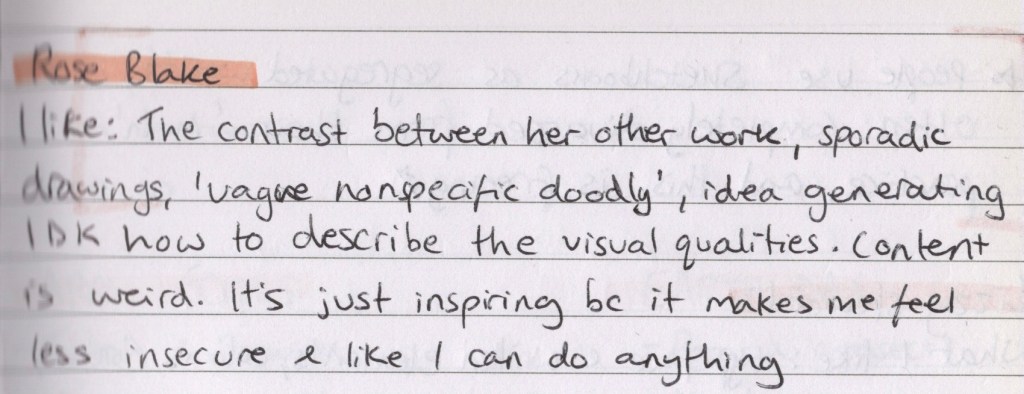 Rose Blake
I like: The contrast between her other work, sporadic
drawings, 'vague nonspecific doodly', idea generating
IDK how to describe the visual qualities. Content
is weird. It's just inspiring bc it makes me feel
less insecure & like I can do anything